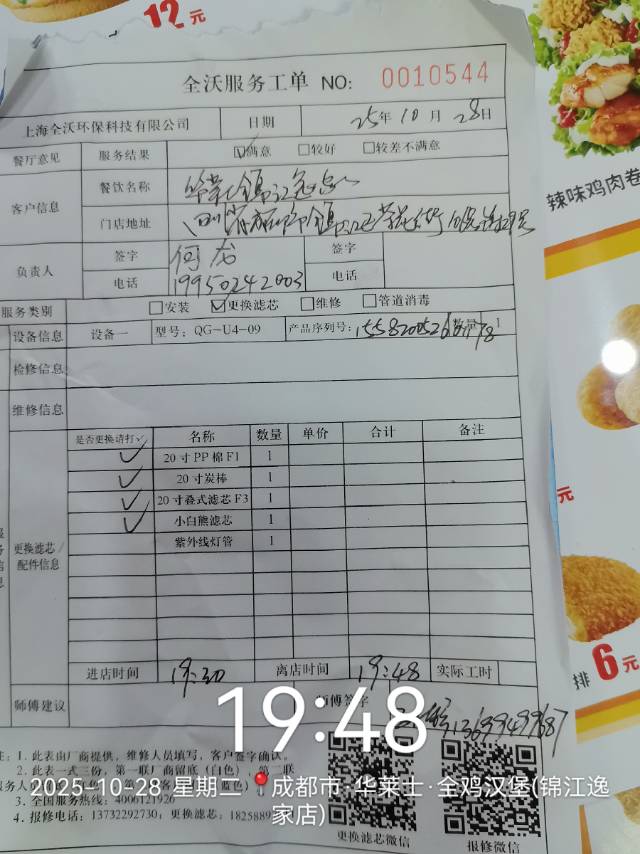 12元
全沃服务工单 NO: 0010544
上海全沃环保科技有限公司 日期 25年10月28日
餐厅意见 服务结果 ☑满意 □较好 □较差不满意
客户信息 餐饮名称
门店地址
辣味鸡肉卷
负责人 签字 何龙 签字
电话 19950242003 电话
服务类别 □安装 ☑更换滤芯 □维修 □管道消毒
设备信息 设备一 型号: QG-U4-09 产品序列号:
检修信息
维修信息
是否更换请打✓ 名称 数量 单价 合计 备注
✓ 20寸PP棉F1 1
✓ 20寸炭棒 1
✓ 20寸叠式滤芯F3 1
✓ 小白熊滤芯 1
紫外线灯管 1
更换滤芯/
配件信息
元
排6元
进店时间 19:30 离店时间 19:48 实际工时
师傅建议 师傅签字 13699499687
19:48
注: 1. 此表由厂商提供, 维修人员填写, 客户签字确认。
2. 此表一式三份, 第一联厂商留底(白色), 第二联
2025-10-28 星期二 成都市·华莱士·全鸡汉堡(锦江逸家店)
3. 全国服务热线: 4006121926
4. 报修电话: 13732292730; 更换滤芯: 18258
更换滤芯微信 报修微信